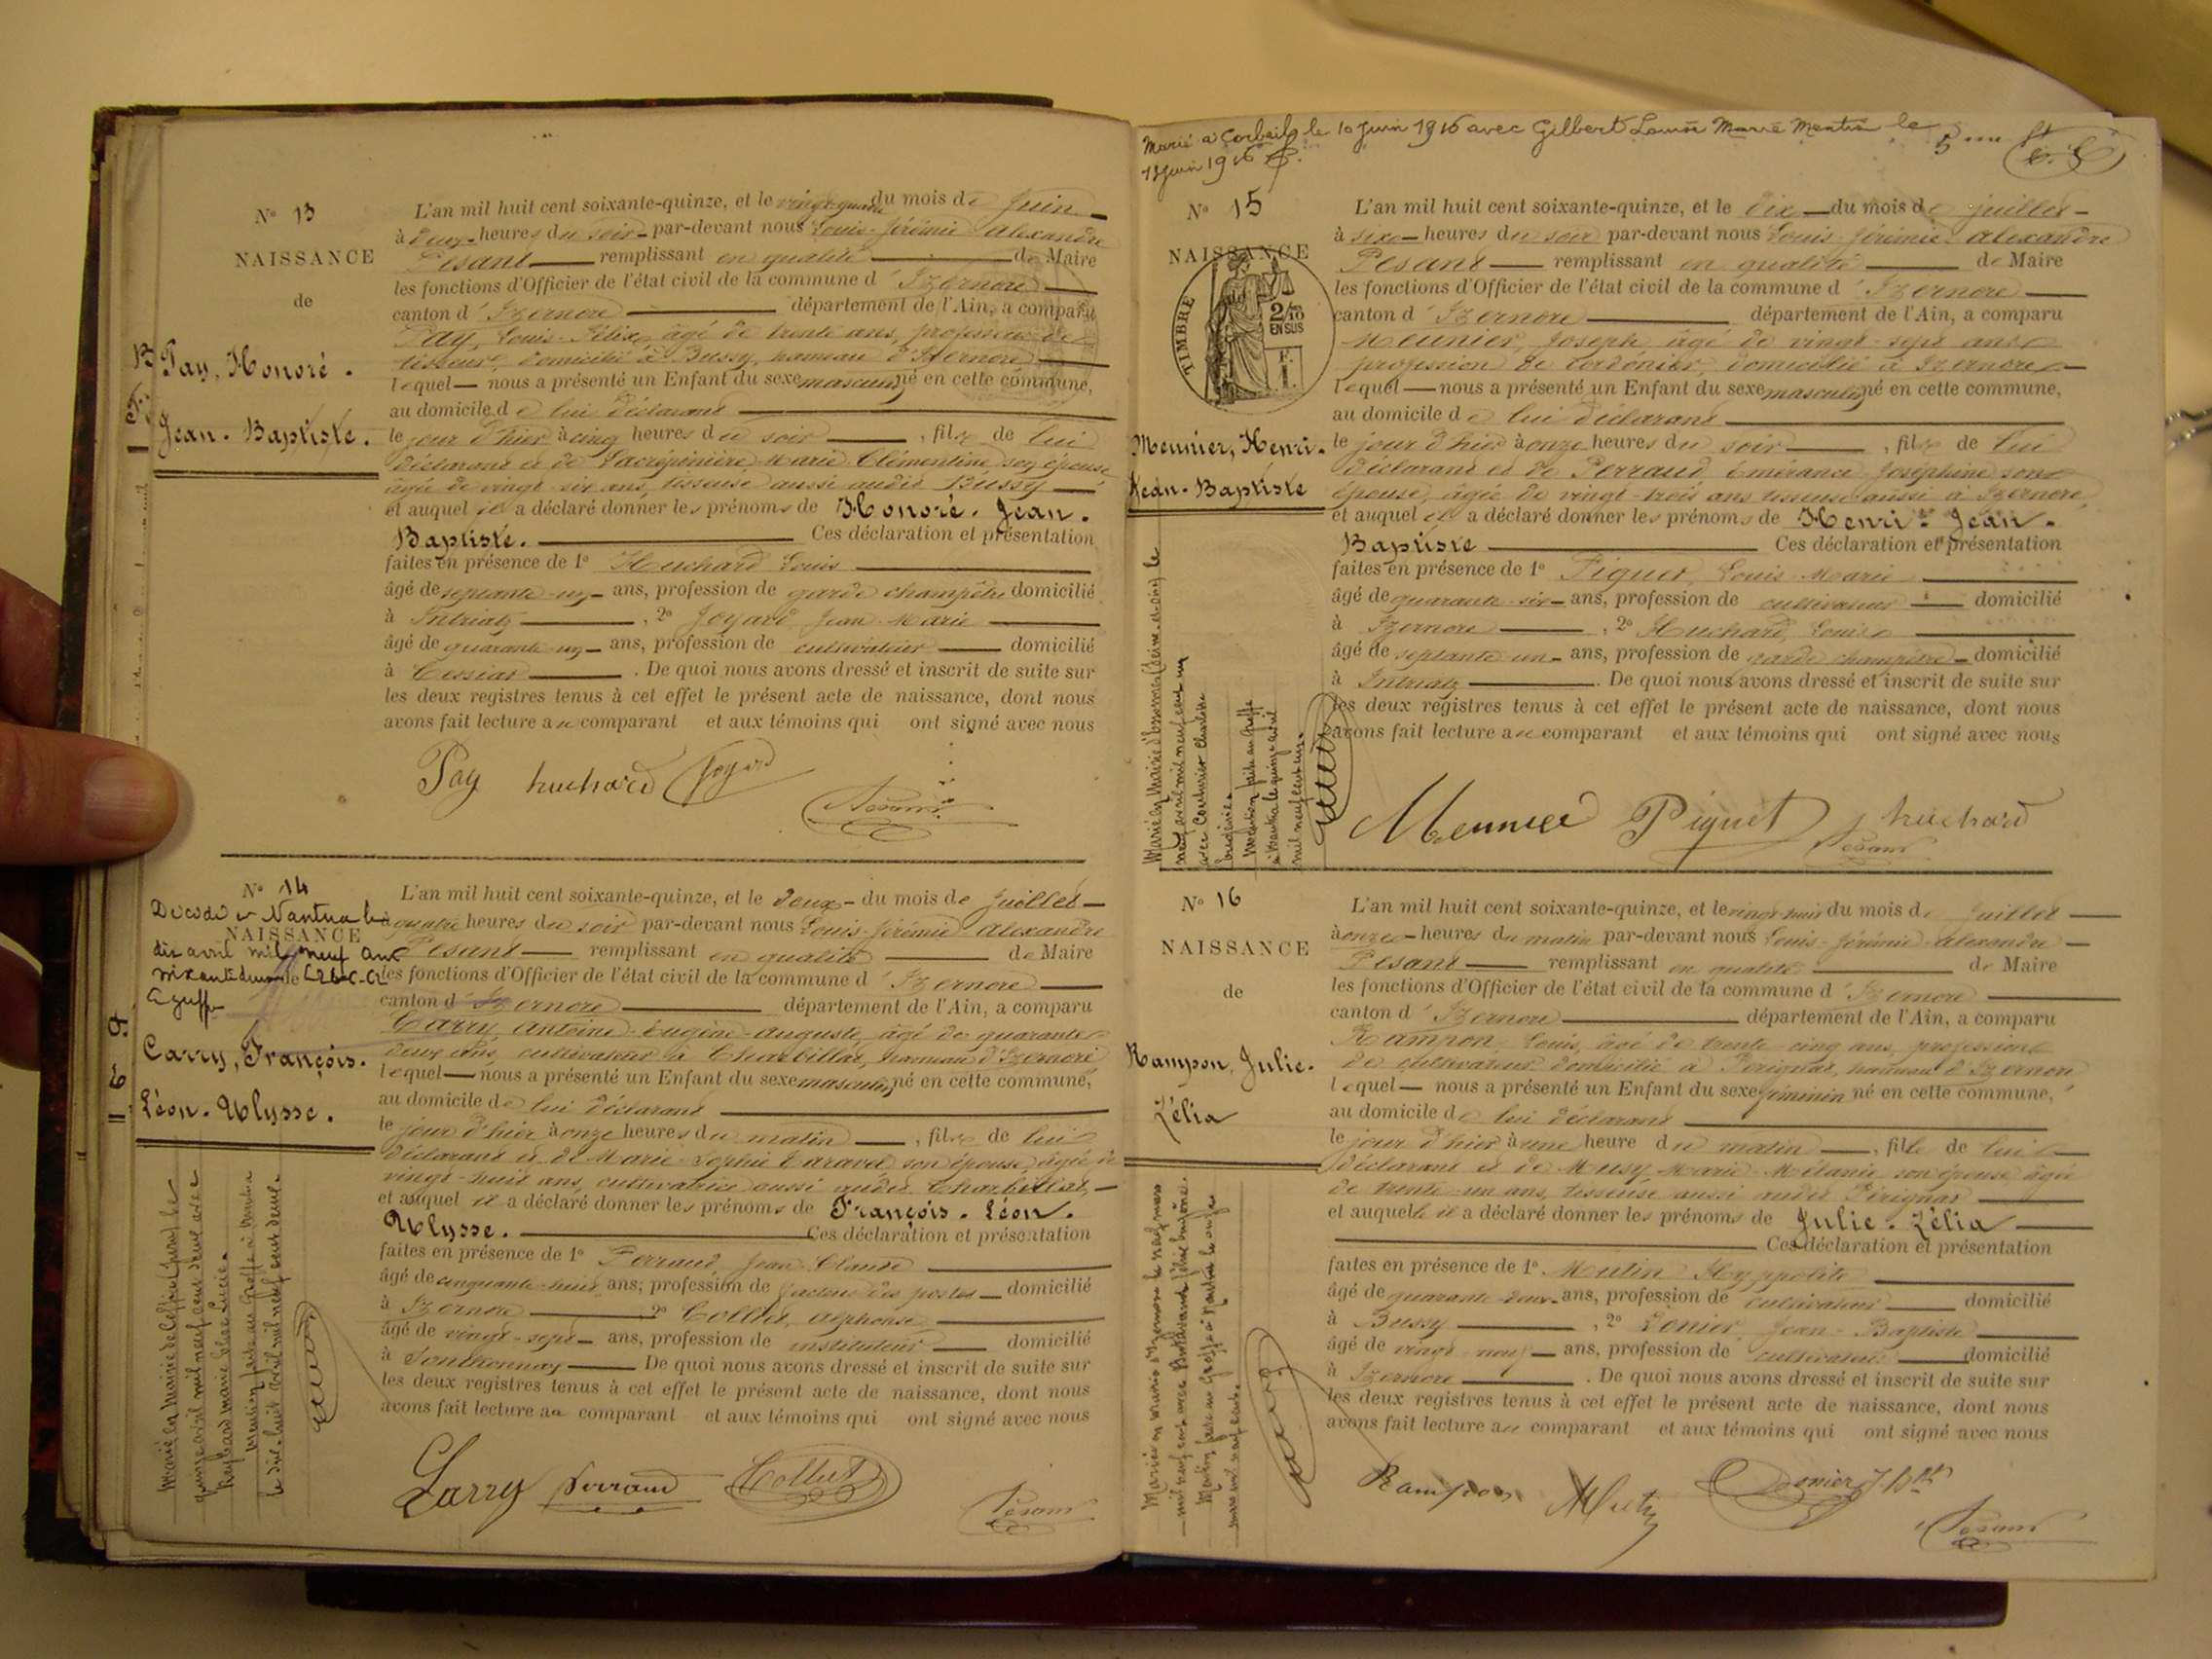 N° 13
NAISSANCE
de
Pay, Honoré.
Jean-Baptiste.
L'an mil huit cent soixante-quinze, et le vingt-quatre du mois de Juin
à deux heures du soir par-devant nous Louis-Jérémie Alexandre
Pesant remplissant en qualité de Maire
les fonctions d'Officier de l'état civil de la commune d'Izernore
canton d'Izernore département de l'Ain, a comparu
Pay, Louis-Félix, âgé de trente ans, profession de
tisseur, domicilié à Bussy, hameau d'Izernore
lequel nous a présenté un Enfant du sexe masculin né en cette commune,
au domicile de lui déclarant
le jour d'hier à cinq heures du soir, fils de lui
déclarant et de Lacrépinière, Marie Clémentine, son épouse
âgée de vingt-six ans, tisseuse aussi audit Bussy
et auquel il a déclaré donner les prénoms de Honoré. Jean.
Baptiste. Ces déclaration et présentation
faites en présence de 1° Huchard Louis
âgé de septante-un ans, profession de garde champêtre domicilié
à Intriatz, 2° Joyard Jean-Marie
âgé de quarante-un ans, profession de cultivateur domicilié
à Cessiat. De quoi nous avons dressé et inscrit de suite sur
les deux registres tenus à cet effet le présent acte de naissance, dont nous
avons fait lecture au comparant et aux témoins qui ont signé avec nous
Pay huchard Joyard Pesant
N° 14
Décédé à Nantua le
NAISSANCE
dix avril mil neuf cent
soixante deux
Le Greffier
Carry, François.
Léon. Ulysse.
L'an mil huit cent soixante-quinze, et le deux du mois de Juillet
à quatre heures du soir par-devant nous Louis-Jérémie Alexandre
Pesant remplissant en qualité de Maire
les fonctions d'Officier de l'état civil de la commune d'Izernore
canton d'Izernore département de l'Ain, a comparu
Carry, Antoine-Eugène-Auguste, âgé de quarante
deux ans, cultivateur à Charbillat, hameau d'Izernore
lequel nous a présenté un Enfant du sexe masculin né en cette commune,
au domicile de lui déclarant
le jour d'hier à onze heures du matin, fils de lui
déclarant et de Marie-Sophie Taravel son épouse, âgée de
vingt-huit ans, cultivatrice aussi audit Charbillat,
et auquel il a déclaré donner les prénoms de François. Léon.
Ulysse. Ces déclaration et présentation
faites en présence de 1° Perraud, Jean-Claude
âgé de cinquante-huit ans, profession de facteur des postes domicilié
à Izernore 2° Collet, Alphonse
âgé de vingt-sept ans, profession de instituteur domicilié
à Sonthonnax De quoi nous avons dressé et inscrit de suite sur
les deux registres tenus à cet effet le présent acte de naissance, dont nous
avons fait lecture au comparant et aux témoins qui ont signé avec nous
Carry Perraud Collet
Pesant
Marié en Mairie de
quinze avril mil neuf cent deux avec
Reybard Marie
Mention faite au Greffe à Nantua
le dix-huit avril mil neuf cent deux
Marié à Corbeil le 10 Juin 1916 avec Gilbert Louise Marie le
13 Juin 1916
N° 15
NAISSANCE
TIMBRE
2/10
EN SUS
Meunier, Henri.
Jean-Baptiste
L'an mil huit cent soixante-quinze, et le dix du mois de juillet
à six heures du soir par-devant nous Louis-Jérémie-Alexandre
Pesant remplissant en qualité de Maire
les fonctions d'Officier de l'état civil de la commune d'Izernore
canton d'Izernore département de l'Ain, a comparu
Meunier, Joseph âgé de vingt-sept ans
profession de cordonier, domicilié à Izernore
lequel nous a présenté un Enfant du sexe masculin né en cette commune,
au domicile de lui déclarant
le jour d'hier à onze heures du soir, fils de lui
déclarant et de Perraud Emérance Joséphine son
épouse, âgée de vingt-trois ans tisseuse aussi à Izernore,
et auquel il a déclaré donner les prénoms de Henri. Jean.
Baptiste Ces déclaration et présentation
faites en présence de 1° Piquet, Louis-Marie
âgé de quarante-six ans, profession de cultivateur domicilié
à Izernore, 2° Huchard, Louis
âgé de septante-un ans, profession de garde champêtre domicilié
à Intriatz. De quoi nous avons dressé et inscrit de suite sur
les deux registres tenus à cet effet le présent acte de naissance, dont nous
avons fait lecture au comparant et aux témoins qui ont signé avec nous
Meunier Piquet huchard
Pesant
neuf avril mil neuf cent un
avec Couturier Charlotte
Mention faite au Greffe
à Nantua le quinze avril
mil neuf cent un.
N° 16
NAISSANCE
de
Rampon, Julie.
Zélia
L'an mil huit cent soixante-quinze, et le vingt-huit du mois de Juillet
à onze heures du matin par-devant nous Louis-Jérémie-Alexandre
Pesant remplissant en qualité de Maire
les fonctions d'Officier de l'état civil de la commune d'Izernore
canton d'Izernore département de l'Ain, a comparu
Rampon, Louis, âgé de trente-cinq ans, profession
de cultivateur domicilié à Pérignat, hameau d'Izernore
lequel nous a présenté un Enfant du sexe féminin né en cette commune,
au domicile de lui déclarant
le jour d'hier à une heure du matin, fille de lui
déclarant et de Musy, Marie-Mélanie son épouse âgée
de trente-un ans, tisseuse aussi audit Pérignat
et auquelle il a déclaré donner les prénoms de Julie. Zélia
Ces déclaration et présentation
faites en présence de 1° Mutin Hyppolite
âgé de quarante-deux ans, profession de cultivateur domicilié
à Bussy, 2° Jean-Baptiste
âgé de vingt-neuf ans, profession de cultivateur domicilié
à Izernore. De quoi nous avons dressé et inscrit de suite sur
les deux registres tenus à cet effet le présent acte de naissance, dont nous
avons fait lecture au comparant et aux témoins qui ont signé avec nous
Rampon Mutin
Pesant
Mariée en Mairie d'Izernore le neuf mars
mil neuf cent avec
Mention faite au Greffe à Nantua le onze
mars mil neuf cent.